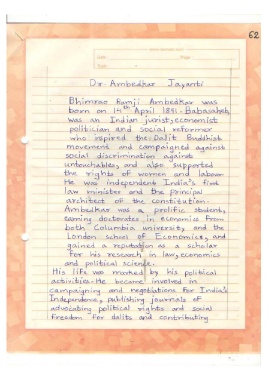 62
Date
Page
Dr. Ambedkar Jayanti
Bhimrao Ramji Ambedkar was
born on 14th April 1891. Babasaheb,
was an Indian jurist, economist
politician and social reformer
who inspired the Dalit Buddhist
movement and campaigned against
social discrimination against
untouchables, and also supported
the rights of women and labour.
He was independent India's first
law minister and the principal
architect of the constitution.
Ambedkar was a prolific student,
earning doctorates in economics from
both Columbia university, and the
London school of Economics, and
gained a reputation as a scholar
for his research in law, economics
and political science.
His life was marked by his political
activities. He became involved in
campaigning and negotiations for India's
Independence, publishing journals of
advocating political rights and social
freedom for dalits and contributing